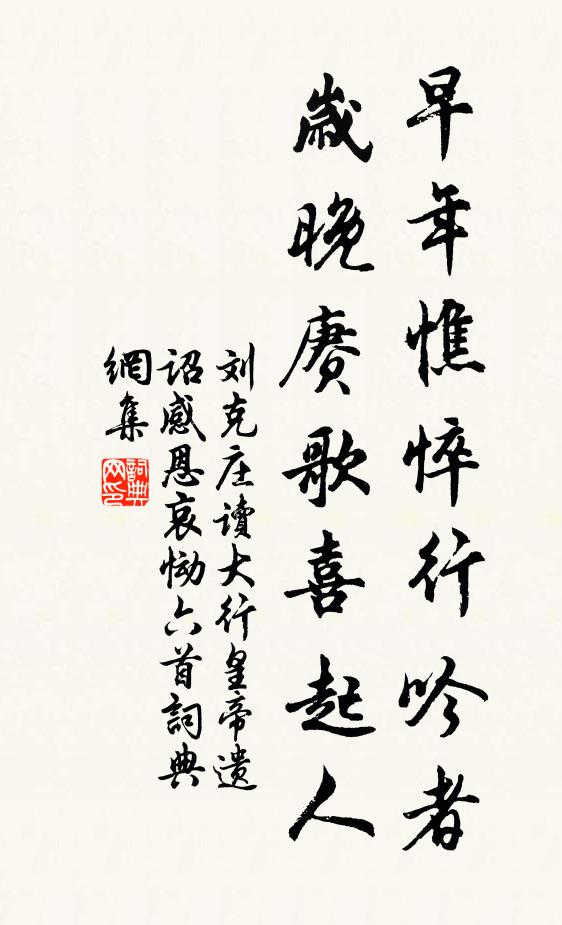 早年憔悴行吟者
歲晚赓歌喜起人
刘克庄讀大行皇帝遗
詔感恩哀慟六首詞典
網集
詞典网印